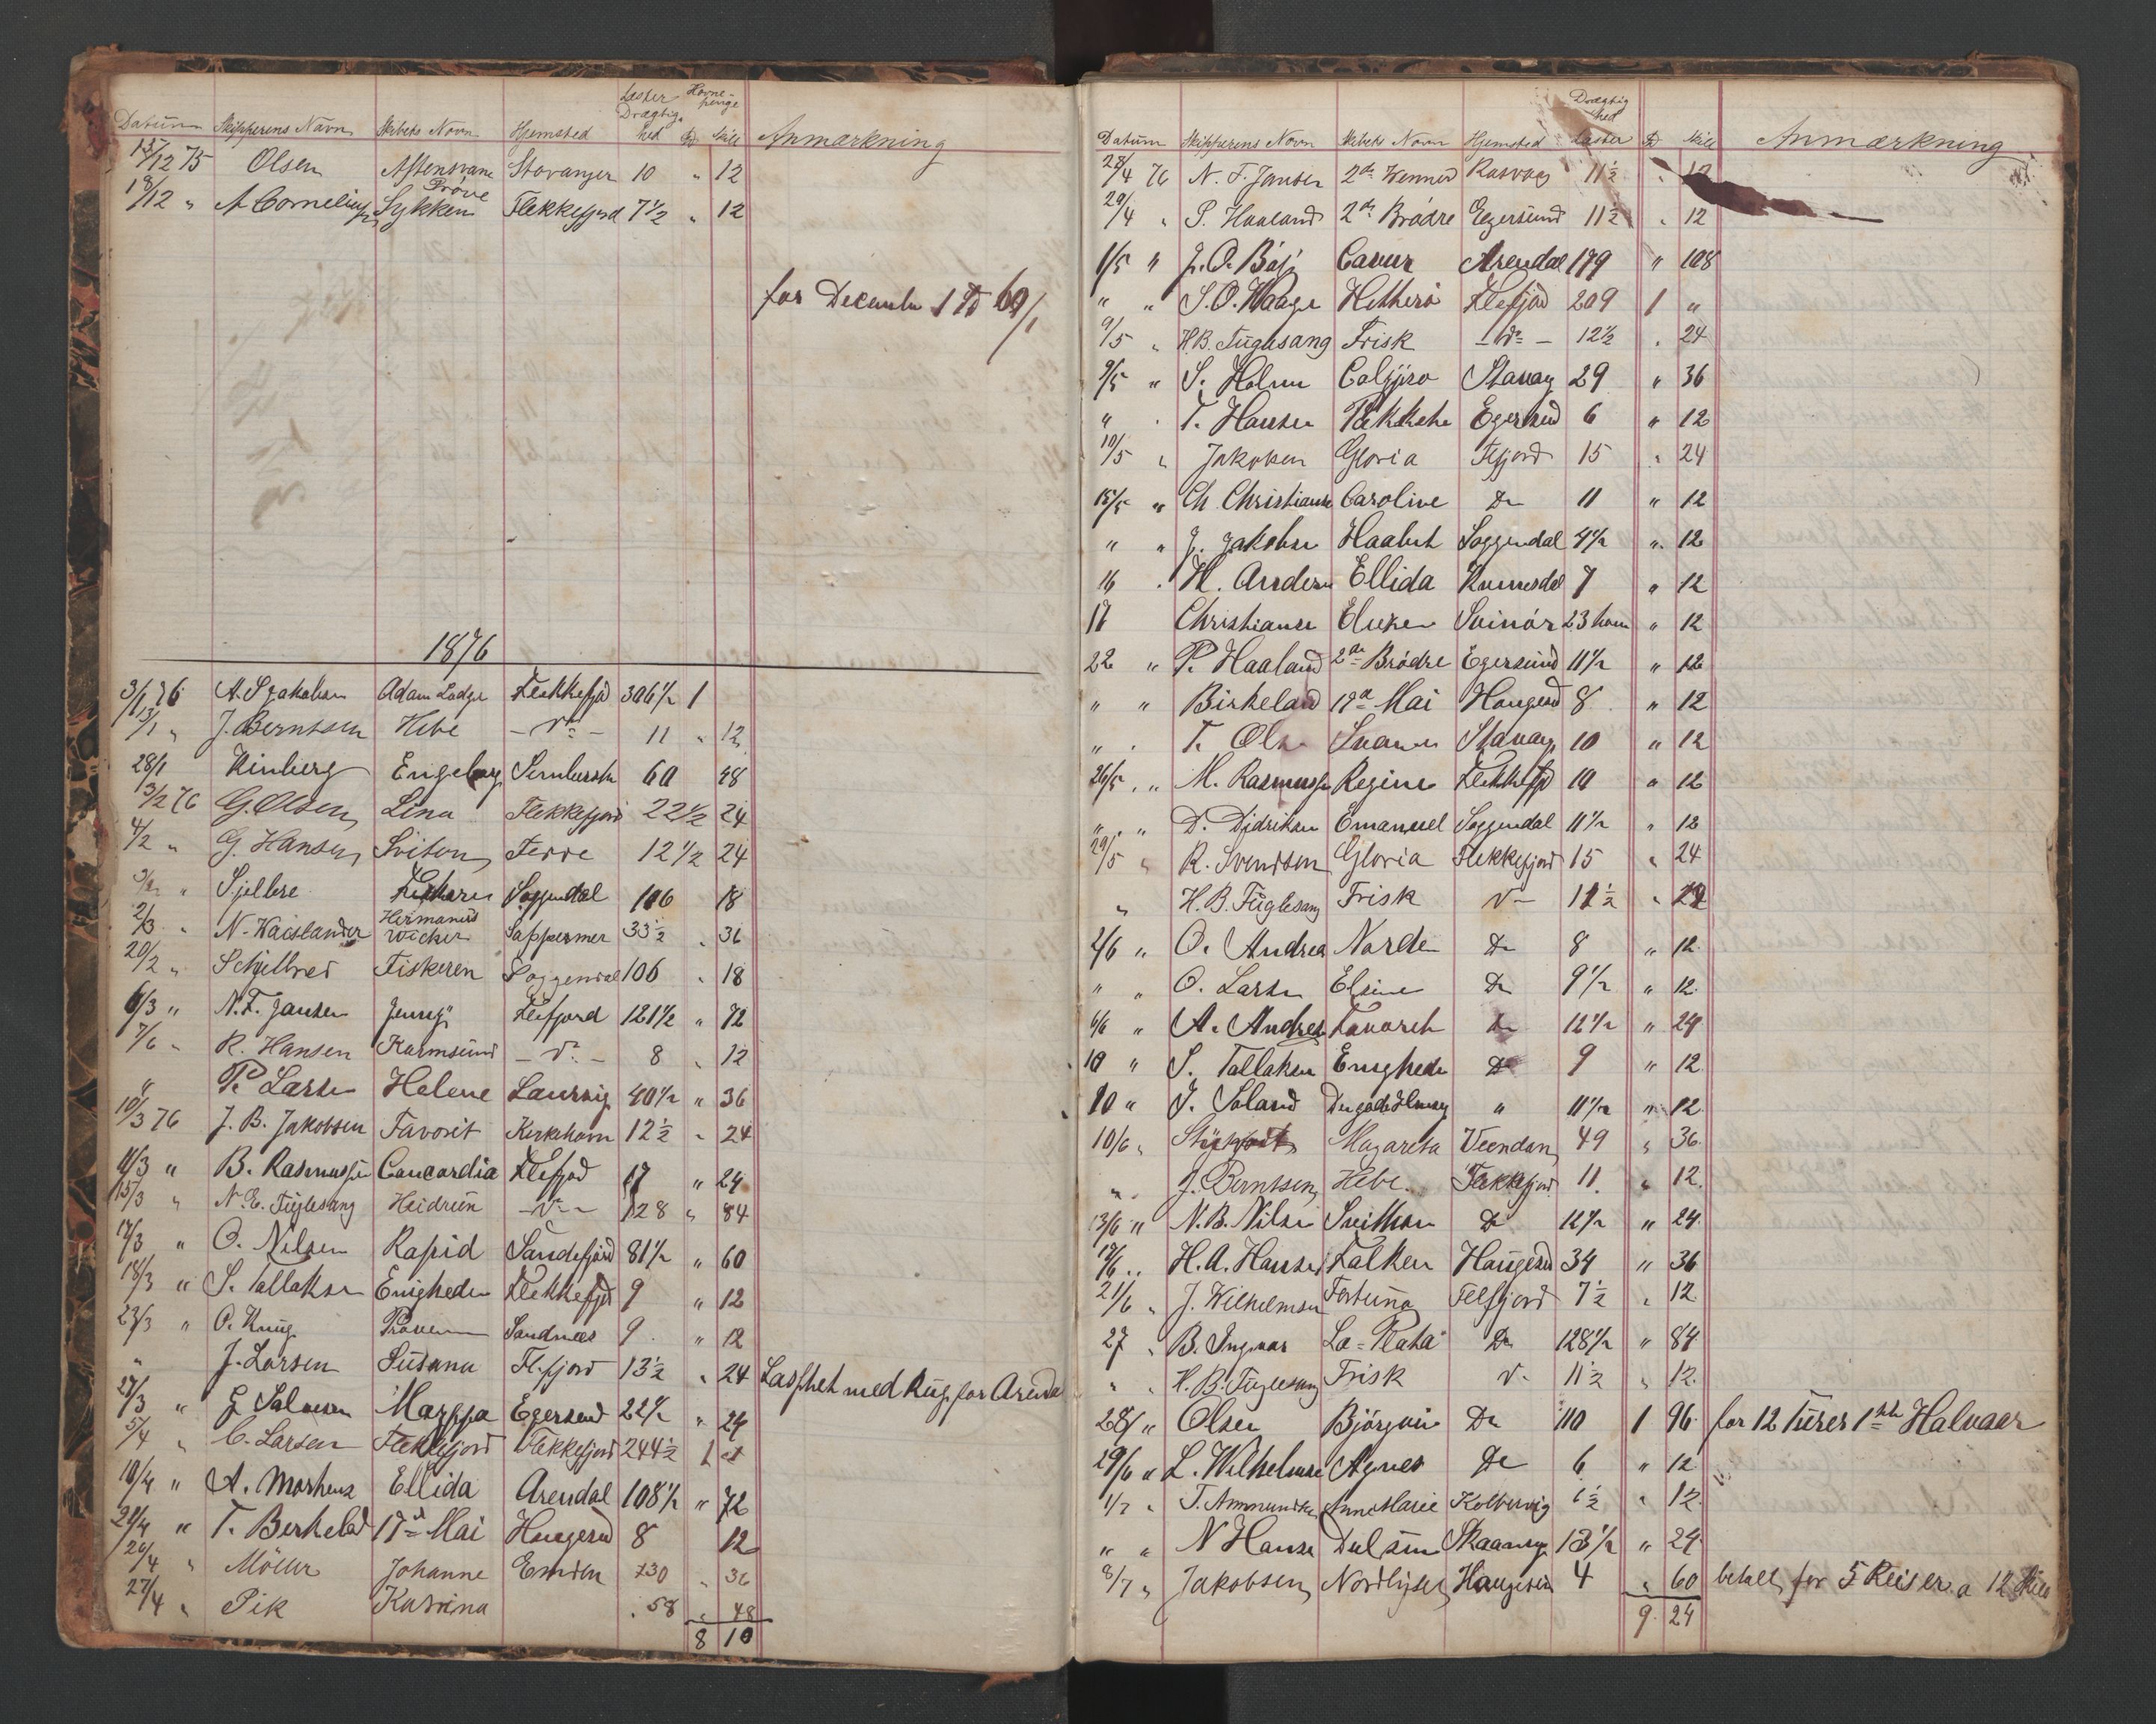 Datum Skipperens Navn Skibets Navn Hjemsted Læster Drægtighed Havnepenge Sp Skill Anmærkning
15/12 75 Olsen Aftensvane Stavanger 10 " 12
18/12 " A Corneliusen Prøve Lykken Flekkefjord 7 1/2 " 12
for December 1 Sp
1876
3/1 76 A. S Jakobsen Adam Lodge Flekkefjd 306 1/2 1
13/1 " J. Berntsen Hebe - do - 11 " 12
28/1 Kinberg Engeborg 60 48
3/2 76 G. Olsen Lina Flekkefjord 22 1/2 24
4/2 " G. Hansen Sviton 12 1/2 24
" Sjelbre Soggendal 106 18
2/3 " N. Kaislander Hermanus Wicker Sappermer 33 1/2 " 36
20/2 " Schjelbred Fiskeren Soggendal 106 " 18
6/3 " N. F. Jansen Jenny Flefjord 121 1/2 " 72
7/6 " R. Hansen Karmsund - do - 8 " 12
" P. Larsen Helene Laurvig 40 1/2 " 36
10/3 76 J. B. Jakobsen Favorit Kirkehavn 12 1/2 " 24
11/3 " B. Rasmussen Concordia Flefjod 17 " 24
15/3 " N. E. Fuglesang Heidrun - do - 128 " 84
17/3 " O. Nilsen Rapid Sandefjord 81 1/2 " 60
18/3 " S. Tallaksen Enigheden Flekkefjd 9 " 12
23/3 " O. Krug Prøven Sandnes 9 " 12
" J. Larsen Susana Fl.fjord 13 1/2 " 24 Lasthet med Rug for Arendal
27/3 " G Salvesen Marppa Egersund 22 1/2 " 24
5/4 " C. Larsen Flekkefjord Flekkefjord 244 1/2 1
10/4 " A. Morhens Ellida Arendal 108 1/2 " 72
21/4 " T. Berkelad 17de Mai Haugesud 8 12
26/4 " Möller Johanne Emden 30 " 36
27/4 " Pik Katrina 58 " 48
8 10
Datum Skipperens Navn Skibets Navn Hjemsted Drægtighed Læster Sp Skill Anmærkning
28/4 76 N. F. Jansen 2de Venner Rasvaag 11 1/2 " 12
29/4 " P. Haaland 2de Brødre Egersund 11 1/2 " 12
1/5 " J. O. Böj Cavur Arendal 179 " 108
" " S. O. Waage Hitherö Flefjod 209 1 "
9/5 " H. B. Fuglesang Frisk - do - 12 1/2 " 24
9/5 " S. Holm Calypso Stavag 29 " 36
" " T. Hansen Egersud 6 " 12
10/5 " Jakobsen Gloria Flfjord 15 " 24
15/5 " Ch. Christiansen Caroline Do 11 " 12
" " J. Jakobsen Haabet Soggendal 4 1/2 " 12
16 " H. Andersen Ellida 7 " 12
17 Christiansen Svinör 23 tons " 12
22 " P. Haaland 2de Brödre Egersund 11 1/2 " 12
" " Birkeland 17de Mai Haugesd 8 " 12
" " T. Olsen Svanen Stavag 10 " 12
26/5 " M. Rasmussen Regine Flekkefjd 10 " 12
" " D. Didriksen Emanuel Soggendal 11 1/2 " 12
29/5 " R. Svendsen Gloria Flekkefjord 15 " 24
" H. B. Fuglesang Frisk do 11 1/2 "
2/6 " O. Andrea Norden Do 8 " 12
" " O. Larsen Elsine Do 9 1/2 " 12
6/6 " A. Andres Favorit Do 12 1/2 " 24
10 " S. Tallaksen Enigheden Do 9 " 12
10 " J. Soland " 11 1/2 " 12
10/6 " Magareta Veendam 49 " 36
" J. Berntsen Hebe Flekkefjord 11 " 12
13/6 " N. B. Nilsen Do 12 1/2 " 24
17/6 " H. A. Hansen Falken Haugesd 34 " 36
21/6 " J. Wilhelmsen Fortuna Flfjord 7 1/2 " 12
27 " B. Ingvar La-Plata Do 128 1/2 " 84
" " H. B. Fuglesang Frisk do 11 1/2 " 12
28/ " Olsen Björgvin Do 110 1 96 for 12 Turer 1ste Halvaar
29/6 " L. Wilhelmsen Agnes Do 6 " 12
1/7 " T. Ammundsen Anne Marie Kolbervig 6 1/2 " 12
" " N Hansen 13 1/2 " 24
8/7 " Jakobsen Nordlyset Haugesund 4 " 60 betalt for 5 Reiser a 12 Skill
9 24